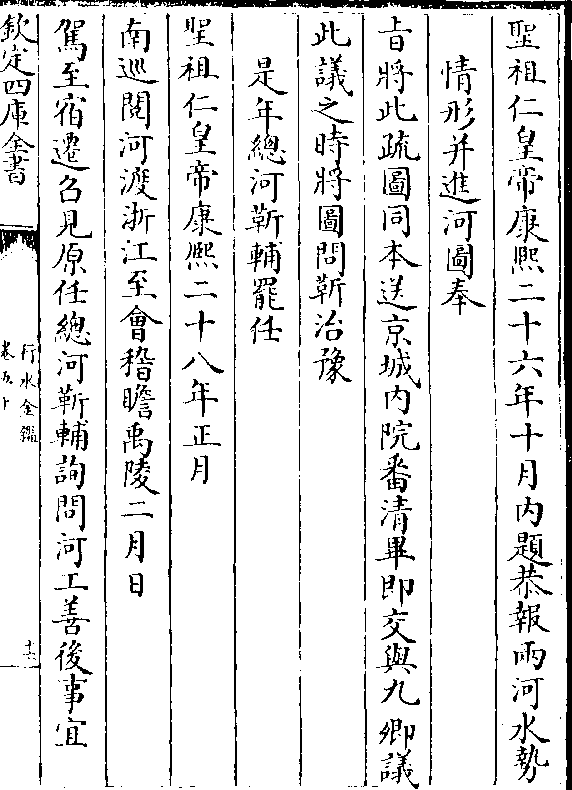 聖祖仁皇帝康熙二十六年十月内題恭報兩河水勢
情形并進河圖奉
㫖將此疏圖同本送京城内院番清畢即交與九卿議
此議之時將圖問靳治豫
是年總河靳輔罷任
聖祖仁皇帝康熙二十八年正月
南巡閲河渡浙江至會稽瞻禹陵二月日
駕至宿遷召見原任總河靳輔詢問河工善後事宜
欽定四庫全書
行水金鑑
卷五十
十二